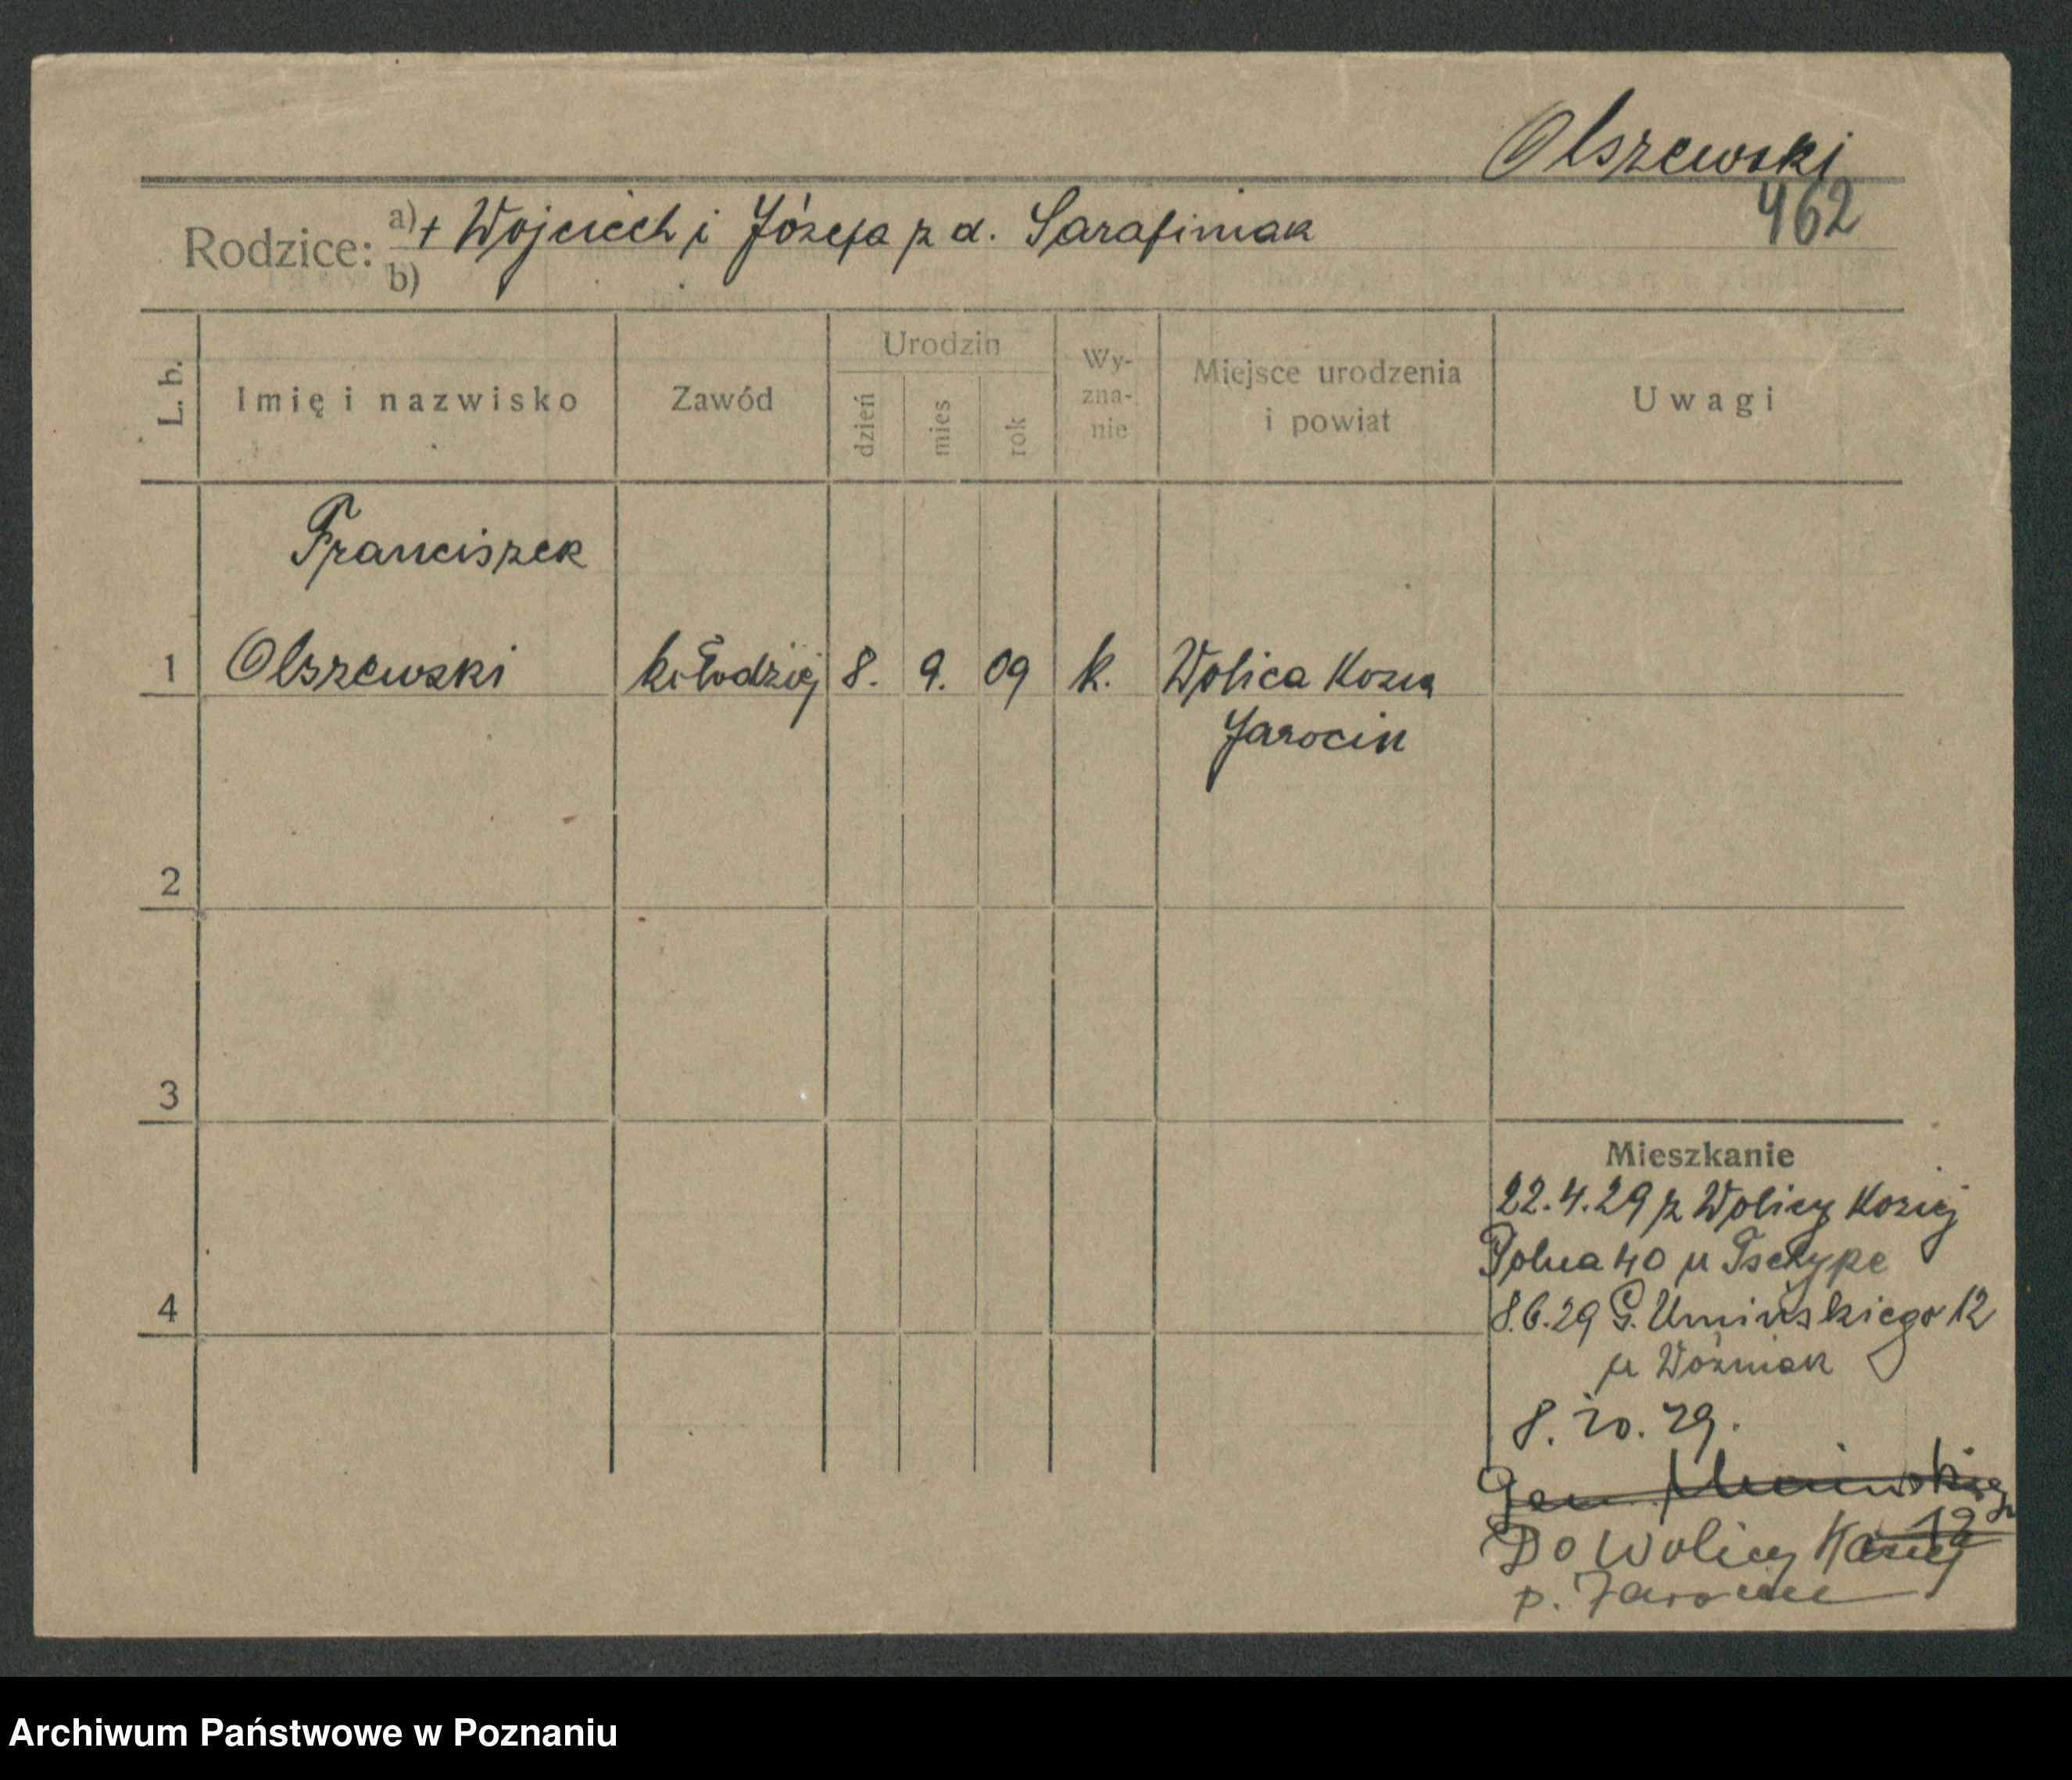 Olszewski
462
Rodzice: a) + Wojciech i Józefa z d. Sarafiniak
b)
L. b. Imię i nazwisko Zawód Urodzin dzień mies rok Wy-zna-nie Miejsce urodzenia i powiat Uwagi
Franciszek
1 Olszewski kołodziej 8. 9. 09 k. Wolica Kozia
Jarocin
2
3
Mieszkanie
22.4.29 z Wolicy Koziej
Polna 40 u
4
8.6.29 G. Umińskiego 12
u Woźniak
8. 10. 29.
Gen. Umińskiego
12
Do Wolicy Koziej
p. Jarocin
Archiwum Państwowe w Poznaniu